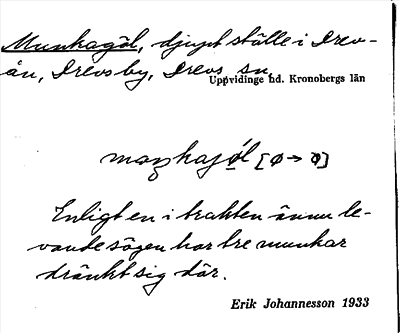 Munkagöl, djupt ställe i Drev-
ån, Drevs by, Drevs sn,
Uppvidinge hd. Kronobergs län
Enligt en i trakten ännu le-
vande sägen har tre munkar
dränkt sig där.
Erik Johannesson 1933